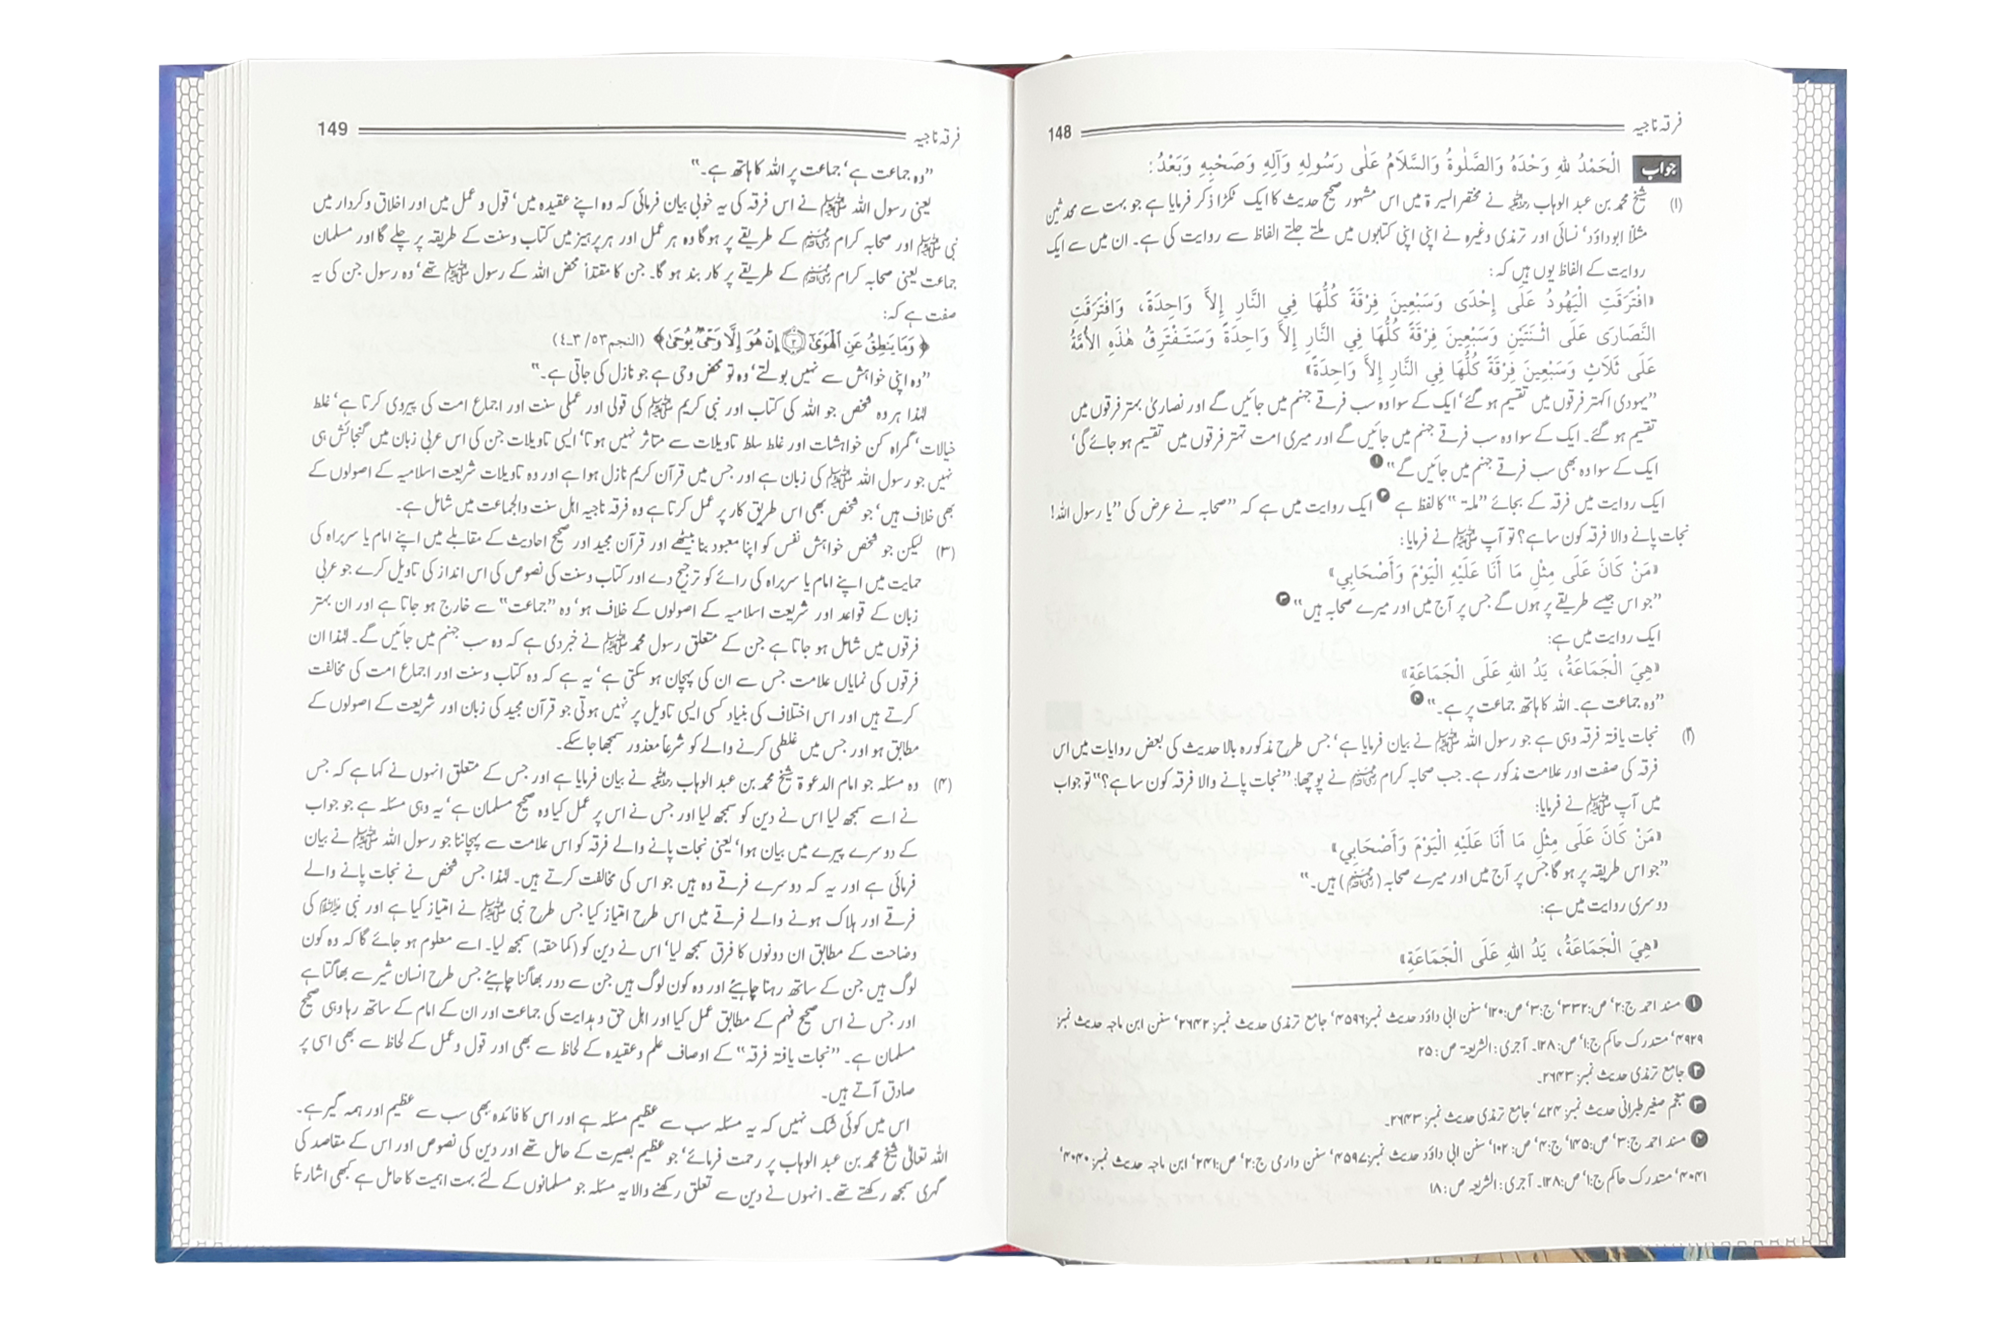 فرقہ ناجیہ 148
جواب الْحَمْدُ للهِ وَحْدَهُ وَالصَّلٰوةُ وَالسَّلَامُ عَلٰى رَسُولِهِ وَآلِهِ وَصَحْبِهِ وَبَعْدُ:
(۱) شیخ محمد بن عبد الوہاب رحمہ اللہ نے مختصر السیرۃ میں اس مشہور صحیح حدیث کا ایک ٹکڑا ذکر فرمایا ہے جو بہت سے محدثین
مثلاً ابوداؤد‘ نسائی اور ترمذی وغیرہ نے اپنی اپنی کتابوں میں ملتے جلتے الفاظ سے روایت کی ہے۔ ان میں سے ایک
روایت کے الفاظ یوں ہیں کہ:
«افْتَرَقَتِ الْيَهُودُ عَلَى إِحْدَى وَسَبْعِينَ فِرْقَةً كُلُّهَا فِي النَّارِ إِلاَّ وَاحِدَةً، وَافْتَرَقَتِ
النَّصَارَى عَلَى اثْنَتَيْنِ وَسَبْعِينَ فِرْقَةً كُلُّهَا فِي النَّارِ إِلاَّ وَاحِدَةً وَسَتَفْتَرِقُ هٰذِهِ الأُمَّةُ
عَلَى ثَلاَثٍ وَسَبْعِينَ فِرْقَةً كُلُّهَا فِي النَّارِ إِلاَّ وَاحِدَةً»
”یہودی اکہتر فرقوں میں تقسیم ہو گئے‘ ایک کے سوا وہ سب فرقے جہنم میں جائیں گے اور نصاریٰ بہتر فرقوں میں
تقسیم ہو گئے۔ ایک کے سوا وہ سب فرقے جہنم میں جائیں گے اور میری امت تہتر فرقوں میں تقسیم ہو جائے گی‘
ایک کے سوا وہ بھی سب فرقے جہنم میں جائیں گے“ ۱
ایک روایت میں فرقہ کے بجائے ”ملۃ“ کا لفظ ہے ۲ ایک روایت میں ہے کہ ”صحابہ نے عرض کی ”یا رسول اللہ!
نجات پانے والا فرقہ کون سا ہے؟ تو آپ ﷺ نے فرمایا:
«مَنْ كَانَ عَلَى مِثْلِ مَا أَنَا عَلَيْهِ الْيَوْمَ وَأَصْحَابِي»
”جو اس جیسے طریقے پر ہوں گے جس پر آج میں اور میرے صحابہ ہیں“ ۳
ایک روایت میں ہے:
«هِيَ الْجَمَاعَةُ، يَدُ اللهِ عَلَى الْجَمَاعَةِ»
”وہ جماعت ہے۔ اللہ کا ہاتھ جماعت پر ہے۔“ ۴
(۲) نجات یافتہ فرقہ وہی ہے جو رسول اللہ ﷺ نے بیان فرمایا ہے‘ جس طرح مذکورہ بالا حدیث کی بعض روایات میں اس
فرقہ کی صفت اور علامت مذکور ہے۔ جب صحابہ کرام رضی اللہ عنہم نے پوچھا: ”نجات پانے والا فرقہ کون سا ہے؟“ تو جواب
میں آپ ﷺ نے فرمایا:
«مَنْ كَانَ عَلَى مِثْلِ مَا أَنَا عَلَيْهِ الْيَوْمَ وَأَصْحَابِي»
”جو اس طریقہ پر ہو گا جس پر آج میں اور میرے صحابہ (رضی اللہ عنہم) ہیں۔“
دوسری روایت میں ہے:
«هِيَ الْجَمَاعَةُ، يَدُ اللهِ عَلَى الْجَمَاعَةِ»
۱ مسند احمد ج:۲‘ ص:۳۳۲‘ ج:۳‘ ص:۱۲۰‘ سنن ابی داؤد حدیث نمبر:۴۵۹۶‘ جامع ترمذی حدیث نمبر: ۲۶۴۲‘ سنن ابن ماجہ حدیث نمبر:
۳۹۲۹‘ مستدرک حاکم ج:۱‘ ص:۱۲۸۔ آجری: الشریعۃ ص: ۲۵
۲ جامع ترمذی حدیث نمبر: ۲۶۴۳۔
۳ معجم صغیر طبرانی حدیث نمبر: ۷۲۴‘ جامع ترمذی حدیث نمبر: ۲۶۴۳۔
۴ مسند احمد ج:۳‘ ص:۱۴۵‘ ج:۴‘ ص: ۱۰۲‘ سنن ابی داؤد حدیث نمبر:۴۵۹۷‘ سنن دارمی ج:۲‘ ص:۲۴۱‘ ابن ماجہ حدیث نمبر: ۴۰۴۰‘
۴۰۴۱‘ مستدرک حاکم ج:۱‘ ص:۱۲۸۔ آجری: الشریعہ ص: ۱۸
فرقہ ناجیہ 149
”وہ جماعت ہے‘ جماعت پر اللہ کا ہاتھ ہے۔“
یعنی رسول اللہ ﷺ نے اس فرقہ کی یہ خوبی بیان فرمائی کہ وہ اپنے عقیدہ میں‘ قول و عمل میں اور اخلاق و کردار میں
نبی ﷺ اور صحابہ کرام رضی اللہ عنہم کے طریقے پر ہو گا وہ ہر عمل اور ہر پرہیز میں کتاب و سنت کے طریقہ پر چلے گا اور مسلمان
جماعت یعنی صحابہ کرام رضی اللہ عنہم کے طریقے پر کار بند ہو گا۔ جن کا مقتدٰا محض اللہ کے رسول ﷺ تھے‘ وہ رسول جن کی یہ
صفت ہے کہ:
﴿وَمَا يَنطِقُ عَنِ ٱلْهَوَىٰٓ ۝٣ إِنْ هُوَ إِلَّا وَحْىٌ يُوحَىٰ﴾ (النجم۵۳/ ۳۔۴)
”وہ اپنی خواہش سے نہیں بولتے‘ وہ تو محض وحی ہے جو نازل کی جاتی ہے۔“
لہٰذا ہر وہ شخص جو اللہ کی کتاب اور نبی کریم ﷺ کی قولی اور عملی سنت اور اجماع امت کی پیروی کرتا ہے‘ غلط
خیالات‘ گمراہ کن خواہشات اور غلط سلط تاویلات سے متاثر نہیں ہوتا‘ ایسی تاویلات جن کی اس عربی زبان میں گنجائش ہی
نہیں جو رسول اللہ ﷺ کی زبان ہے اور جس میں قرآن کریم نازل ہوا ہے اور وہ تاویلات شریعت اسلامیہ کے اصولوں کے
بھی خلاف ہیں‘ جو شخص بھی اس طریق کار پر عمل کرتا ہے وہ فرقہ ناجیہ اہل سنت والجماعت میں شامل ہے۔
(۳) لیکن جو شخص خواہش نفس کو اپنا معبود بنا بیٹھے اور قرآن مجید اور صحیح احادیث کے مقابلے میں اپنے امام یا سربراہ کی
حمایت میں اپنے امام یا سربراہ کی رائے کو ترجیح دے اور کتاب و سنت کی نصوص کی اس انداز کی تاویل کرے جو عربی
زبان کے قواعد اور شریعت اسلامیہ کے اصولوں کے خلاف ہو‘ وہ ”جماعت“ سے خارج ہو جاتا ہے اور ان بہتر
فرقوں میں شامل ہو جاتا ہے جن کے متعلق رسول محمد ﷺ نے خبر دی ہے کہ وہ سب جہنم میں جائیں گے۔ لہٰذا ان
فرقوں کی نمایاں علامت جس سے ان کی پہچان ہو سکتی ہے‘ یہ ہے کہ وہ کتاب و سنت اور اجماع امت کی مخالفت
کرتے ہیں اور اس اختلاف کی بنیاد کسی ایسی تاویل پر نہیں ہوتی جو قرآن مجید کی زبان اور شریعت کے اصولوں کے
مطابق ہو اور جس میں غلطی کرنے والے کو شرعاً معذور سمجھا جا سکے۔
(۴) وہ مسئلہ جو امام الدعوۃ شیخ محمد بن عبد الوہاب رحمہ اللہ نے بیان فرمایا ہے اور جس کے متعلق انہوں نے کہا ہے کہ جس
نے اسے سمجھ لیا اس نے دین کو سمجھ لیا اور جس نے اس پر عمل کیا وہ صحیح مسلمان ہے‘ یہ وہی مسئلہ ہے جو جواب
کے دوسرے پیرے میں بیان ہوا‘ یعنی نجات پانے والے فرقہ کو اس علامت سے پہچاننا جو رسول اللہ ﷺ نے بیان
فرمائی ہے اور یہ کہ دوسرے فرقے وہ ہیں جو اس کی مخالفت کرتے ہیں۔ لہٰذا جس شخص نے نجات پانے والے
فرقے اور ہلاک ہونے والے فرقے میں اس طرح امتیاز کیا جس طرح نبی ﷺ نے امتیاز کیا ہے اور نبی ﷺ کی
وضاحت کے مطابق ان دونوں کا فرق سمجھ لیا‘ اس نے دین کو (کما حقہ) سمجھ لیا۔ اسے معلوم ہو جائے گا کہ وہ کون
لوگ ہیں جن کے ساتھ رہنا چاہئے اور وہ کون لوگ ہیں جن سے دور بھاگنا چاہئے جس طرح انسان شیر سے بھاگتا ہے
اور جس نے اس صحیح فہم کے مطابق عمل کیا اور اہل حق و ہدایت کی جماعت اور ان کے امام کے ساتھ رہا وہی صحیح
مسلمان ہے۔ ”نجات یافتہ فرقہ“ کے اوصاف علم و عقیدہ کے لحاظ سے بھی اور قول و عمل کے لحاظ سے بھی اسی پر
صادق آتے ہیں۔
اس میں کوئی شک نہیں کہ یہ مسئلہ سب سے عظیم مسئلہ ہے اور اس کا فائدہ بھی سب سے عظیم اور ہمہ گیر ہے۔
اللہ تعالیٰ شیخ محمد بن عبد الوہاب پر رحمت فرمائے‘ جو عظیم بصیرت کے حامل تھے اور دین کی نصوص اور اس کے مقاصد کی
گہری سمجھ رکھتے تھے۔ انہوں نے دین سے تعلق رکھنے والا یہ مسئلہ جو مسلمانوں کے لئے بہت اہمیت کا حامل ہے کبھی اشارتا